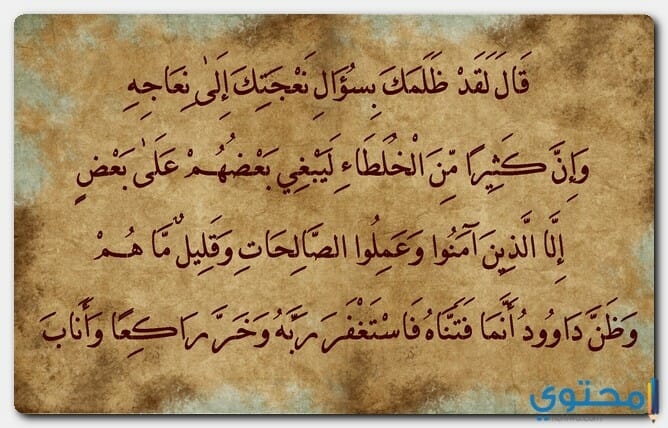 قَالَ لَقَدْ ظَلَمَكَ بِسُؤَالِ نَعْجَتِكَ إِلَىٰ نِعَاجِهِ
وَإِنَّ كَثِيرًا مِّنَ الْخُلَطَاءِ لَيَبْغِي بَعْضُهُمْ عَلَىٰ بَعْضٍ
إِلَّا الَّذِينَ آمَنُوا وَعَمِلُوا الصَّالِحَاتِ وَقَلِيلٌ مَّا هُمْ
وَظَنَّ دَاوُودُ أَنَّمَا فَتَنَّاهُ فَاسْتَغْفَرَ رَبَّهُ وَخَرَّ رَاكِعًا وَأَنَابَ
محتوي